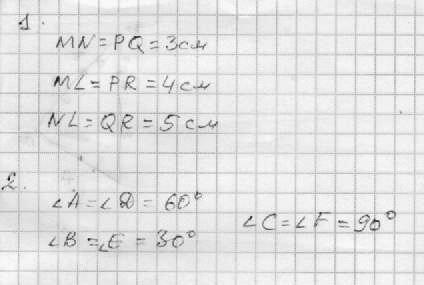 1.
MN = PQ = 3см
ML = PR = 4см
NL = QR = 5см
2.
∠A = ∠D = 60°
∠C = ∠F = 90°
∠B = ∠E = 30°